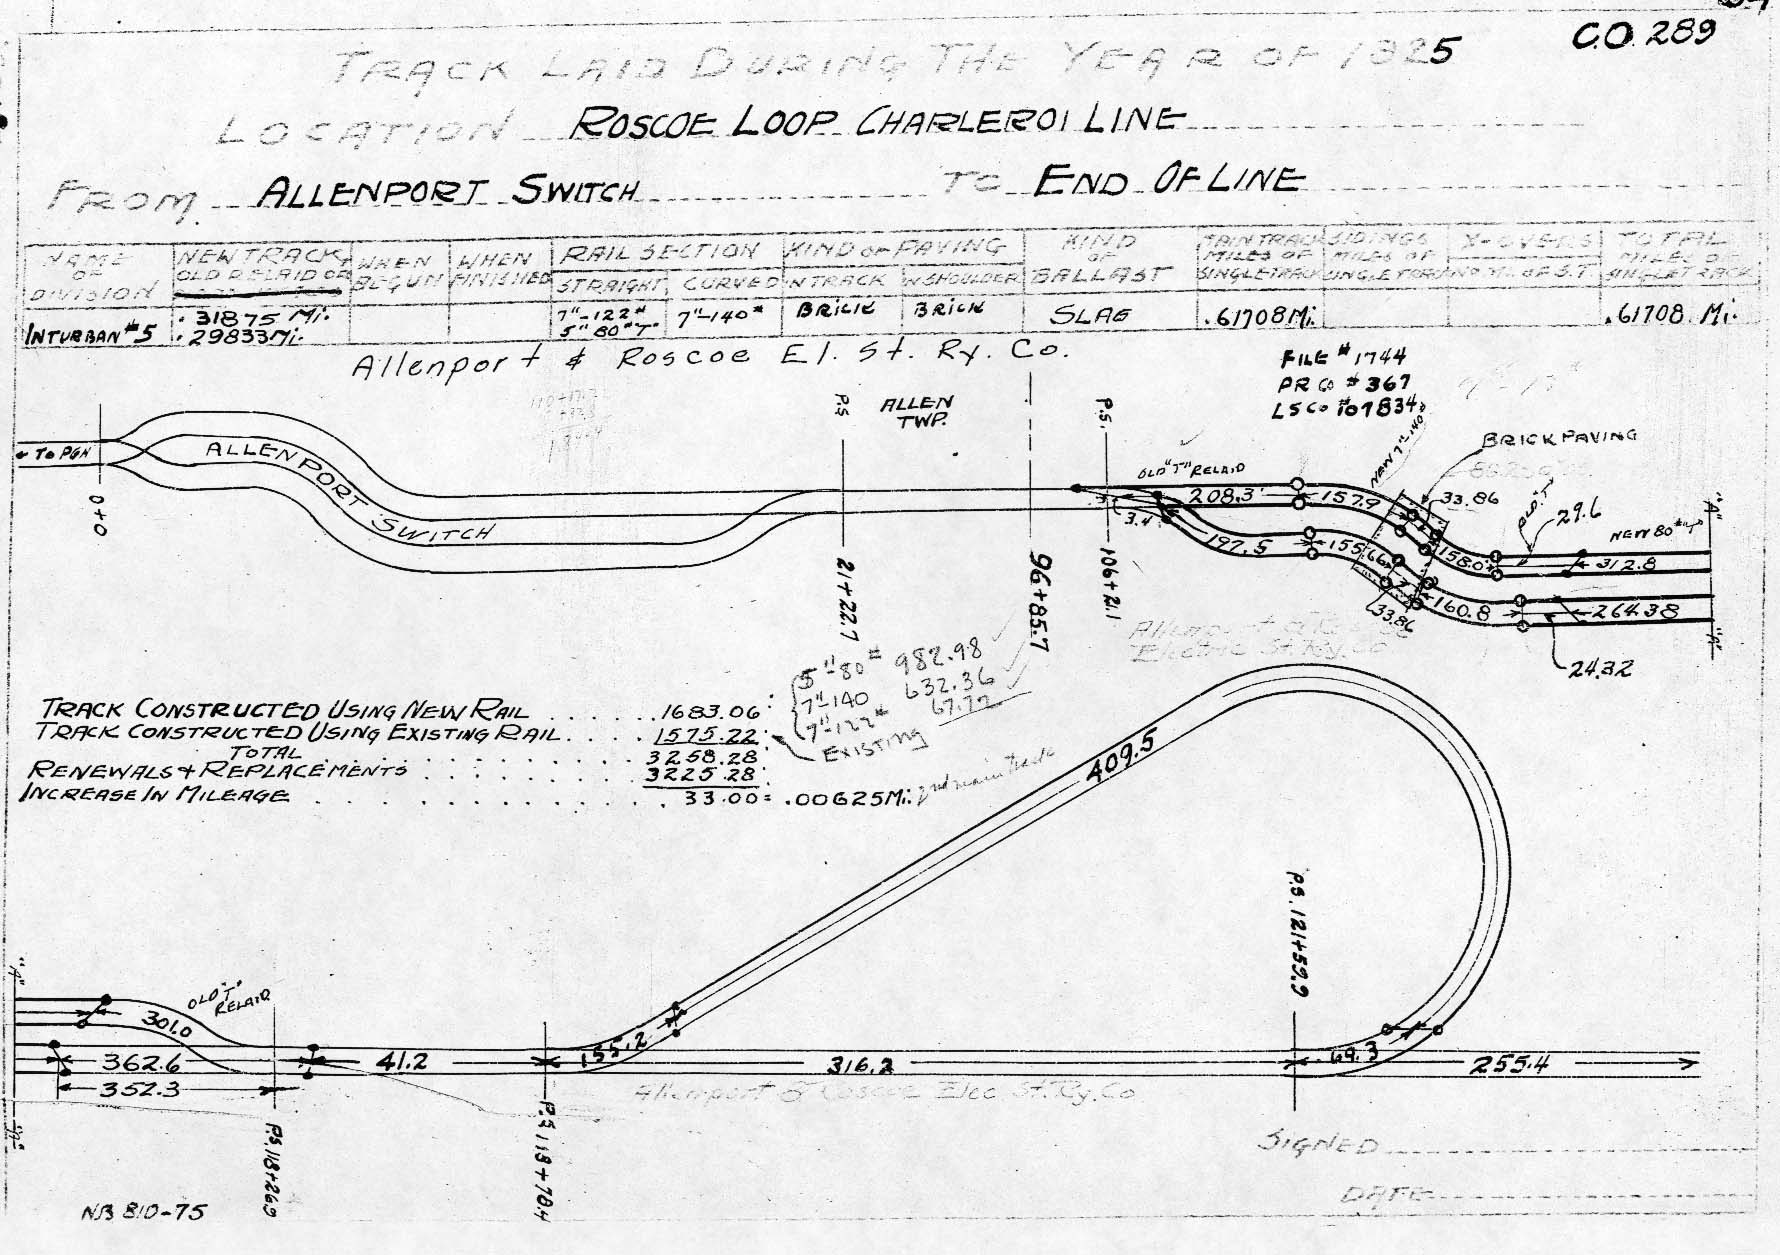 C.O. 289
TRACK LAID DURING THE YEAR OF 1925
LOCATION ROSCOE LOOP CHARLEROI LINE
FROM ALLENPORT SWITCH TO END OF LINE
NAME OF DIVISION
NEW TRACK, OLD RELAID OR
WHEN BEGUN
WHEN FINISHED
RAIL SECTION
STRAIGHT
CURVED
KIND OF PAVING
IN TRACK
IN SHOULDER
KIND OF BALLAST
MAIN TRACK MILES OF SINGLE TRACK
SIDINGS MILES OF SINGLE TRACK
X-OVERS
NO. M. OF S.T.
TOTAL MILES OF SINGLE TRACK
INTURBAN #5
.31875 Mi.
.29833 Mi.
7"-122#
5" 80# "T"
7"-140#
BRICK
BRICK
SLAG
.61708 Mi.
.61708 Mi.
Allenport & Roscoe El. St. Ry. Co.
FILE #1744
PR Co #367
LS Co #107834
TO PGH
0+0
ALLENPORT SWITCH
P.S.
21+22.7
ALLEN TWP.
96+85.7
P.S.
106+21.1
OLD "T" RELAID
NEW 7"-140#
BRICK PAVING
208.3
157.9
33.86
OLD "T"
29.6
NEW 80# "T"
"A"
3.4
197.5
155.66
158.0
312.8
33.86
160.8
264.38
24.32
"A"
Allenport & Roscoe
Electric St. Ry. Co
TRACK CONSTRUCTED USING NEW RAIL . . . . . . 1683.06'
TRACK CONSTRUCTED USING EXISTING RAIL . . . . 1575.22'
TOTAL . . . . 3258.28
RENEWALS & REPLACEMENTS . . . . 3225.28'
INCREASE IN MILEAGE . . . . 33.00 = .00625 Mi. 2nd main track
5"-80# 982.98
7"-140 632.36
7"-122# 67.72
EXISTING
409.5
P.S. 121+59.9
"A"
OLD "T" RELAID
301.0
362.6
352.3
41.2
155.2
316.2
69.3
255.4
Allenport & Roscoe Elec St. Ry. Co
"A"
P.S. 118+26.9
P.S. 118+78.4
SIGNED
DATE
NB 810-75